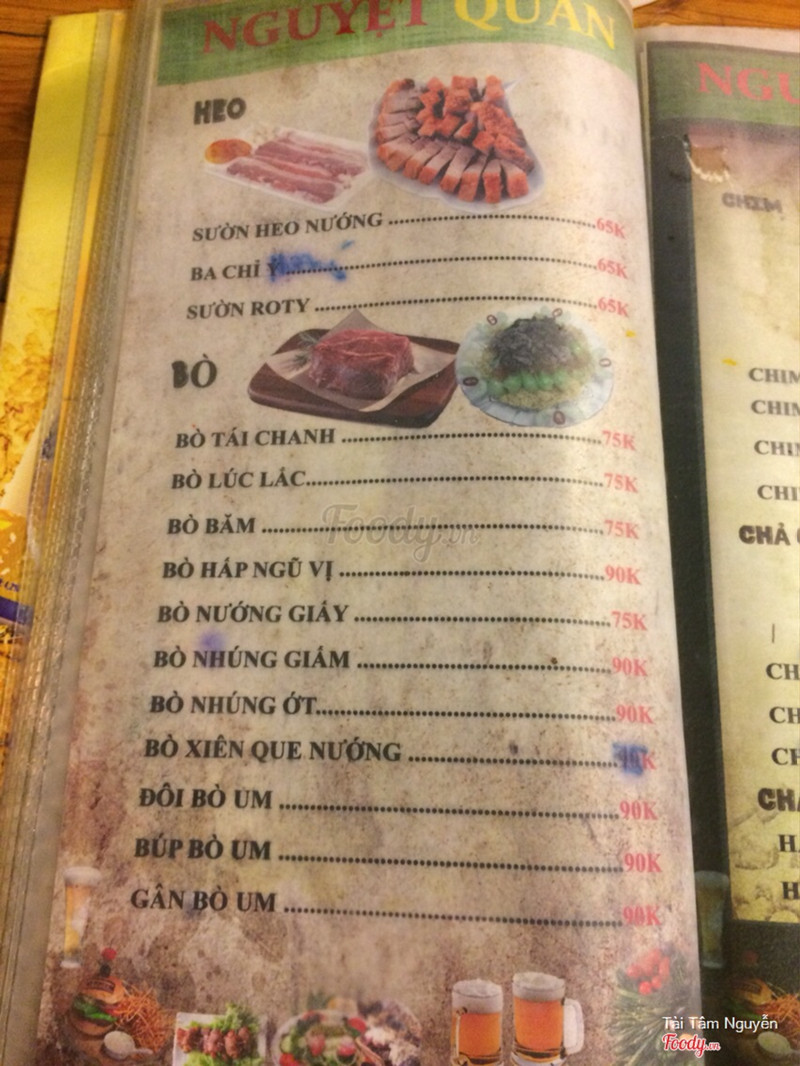 NGUYỆT QUÁN
HEO
SƯỜN HEO NƯỚNG ........ 65K
BA CHỈ ........ 65K
SƯỜN ROTY ........ 65K
BÒ
BÒ TÁI CHANH ........ 75K
BÒ LÚC LẮC ........ 75K
BÒ BĂM ........ 75K
BÒ HẤP NGŨ VỊ ........ 90K
BÒ NƯỚNG GIẤY ........ 75K
BÒ NHÚNG GIẤM ........ 90K
BÒ NHÚNG ỚT ........ 90K
BÒ XIÊN QUE NƯỚNG ........ K
ĐÔI BÒ UM ........ 90K
BÚP BÒ UM ........ 90K
GÂN BÒ UM ........ 90K
Foody.vn
NGU
CHIM
CHIM
CHIM
CHIM
CHIM
CHẢ
CH
CH
CH
CH
H
H
Tài Tâm Nguyễn
Foody.vn